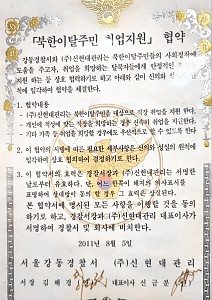 「북한이탈주민 취업지원」 협약
강동경찰서와 (주)신현대관리는 북한이탈주민들의 사회정착에
도움을 주고자, 취업을 희망하는 탈북자들에게
하는 등 상호 협력하기로 하고 아래와 같이 신의와
칙에 입각하여 협약을 체결한다.
1. 협약내용
(주)신현대관리는 북한이탈주민을 대상으로 직장 취업을 지원 한다.
개인의 적성에 맞는 직종을 희망하는 경우 신속히 취업을 지원한다.
기타 가족 등 취업을 희망할 경우에도 우선적으로 할 수 있도록 한다
2. 이 협약의 시행에 따른 필요한 세부사항은 신의와 성실의 원칙에
입각하여 상호 협의하여 결정하기로 한다.
3. 이 협약서의 효력은 경찰서장과 (주)신현대관리가 서명한
날로부터 유효하다. 단, 어느 한쪽이 해지의 의사표시를
할 경우 그 효력은 상실된다.
본 협약서에 명시된 모든 사항을 이행할 것을 동의
하기로 하고, 경찰서장과 (주)신현대관리 대표이사가
서명하여 경찰서 및 회사에 비치한다.
2011년 8월 5일
서울강동경찰서 (주)신현대관리
서장 김해경 대표이사 신금문